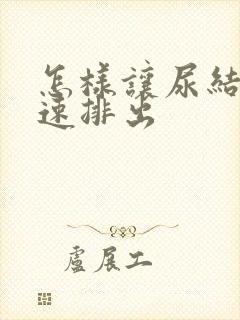 怎樣讓尿結
速排出
盧展工